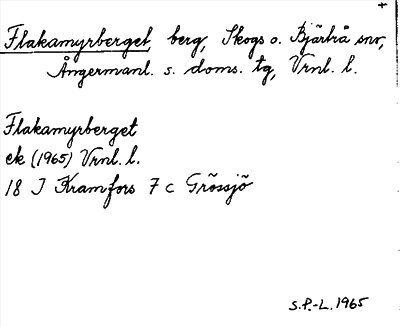 +
Flakamyrberget, berg, Skogs o. Bjärtrå snr,
Ångermanl. s. doms. tg, Vrnl. l.
Flakamyrberget
ek (1965) Vrnl. l.
18 J Kramfors 7 c Grössjö
S.P.-L. 1965